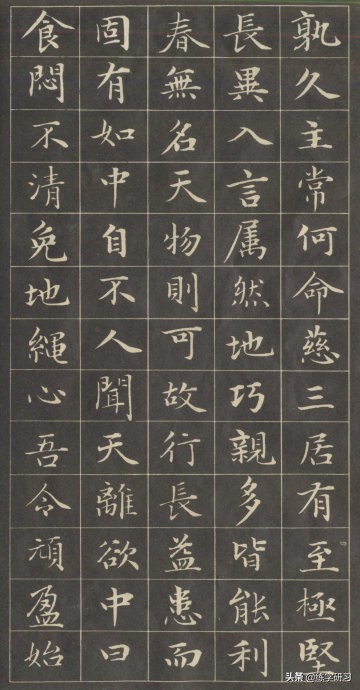 孰久主常何命慈三居有至極堅
長異入言属然地巧親多皆能利
春無名天物則可故行長益患而
固有如中自不人聞天離欲中曰
食悶不清免地繩心吾令頑盈始
头条@练字研习